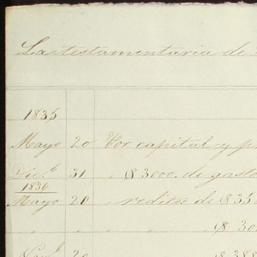 La testamentaria de
1835
Mayo 20 Por capital y
Dic.e 31 " $3000. de gasto
1836
Mayo 20 " reditos de $35
" " " " $30
20 $38